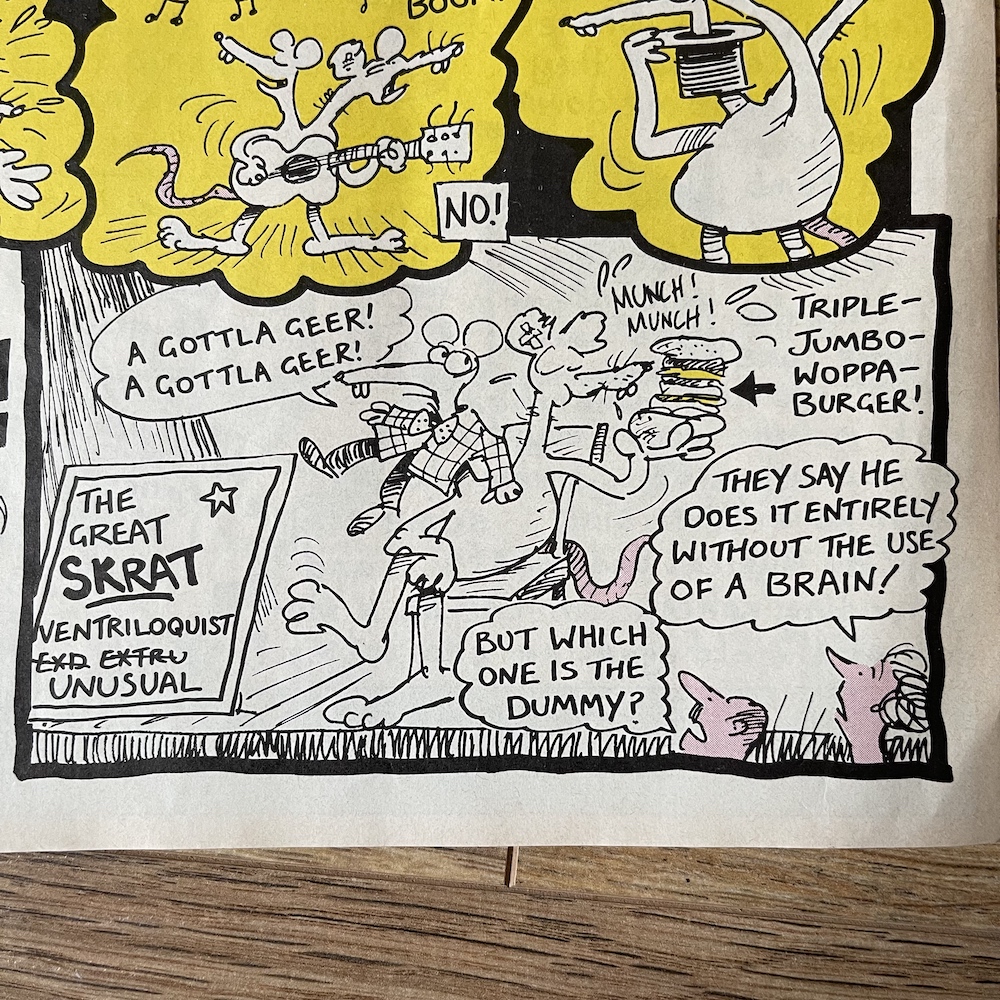 BOOM!
NO!
A GOTTLA GEER!
A GOTTLA GEER!
MUNCH!
MUNCH!
TRIPLE-
JUMBO-
WOPPA-
BURGER!
THE
GREAT
SKRAT
VENTRILOQUIST
EXD EXTRU
UNUSUAL
THEY SAY HE
DOES IT ENTIRELY
WITHOUT THE USE
OF A BRAIN!
BUT WHICH
ONE IS THE
DUMMY?